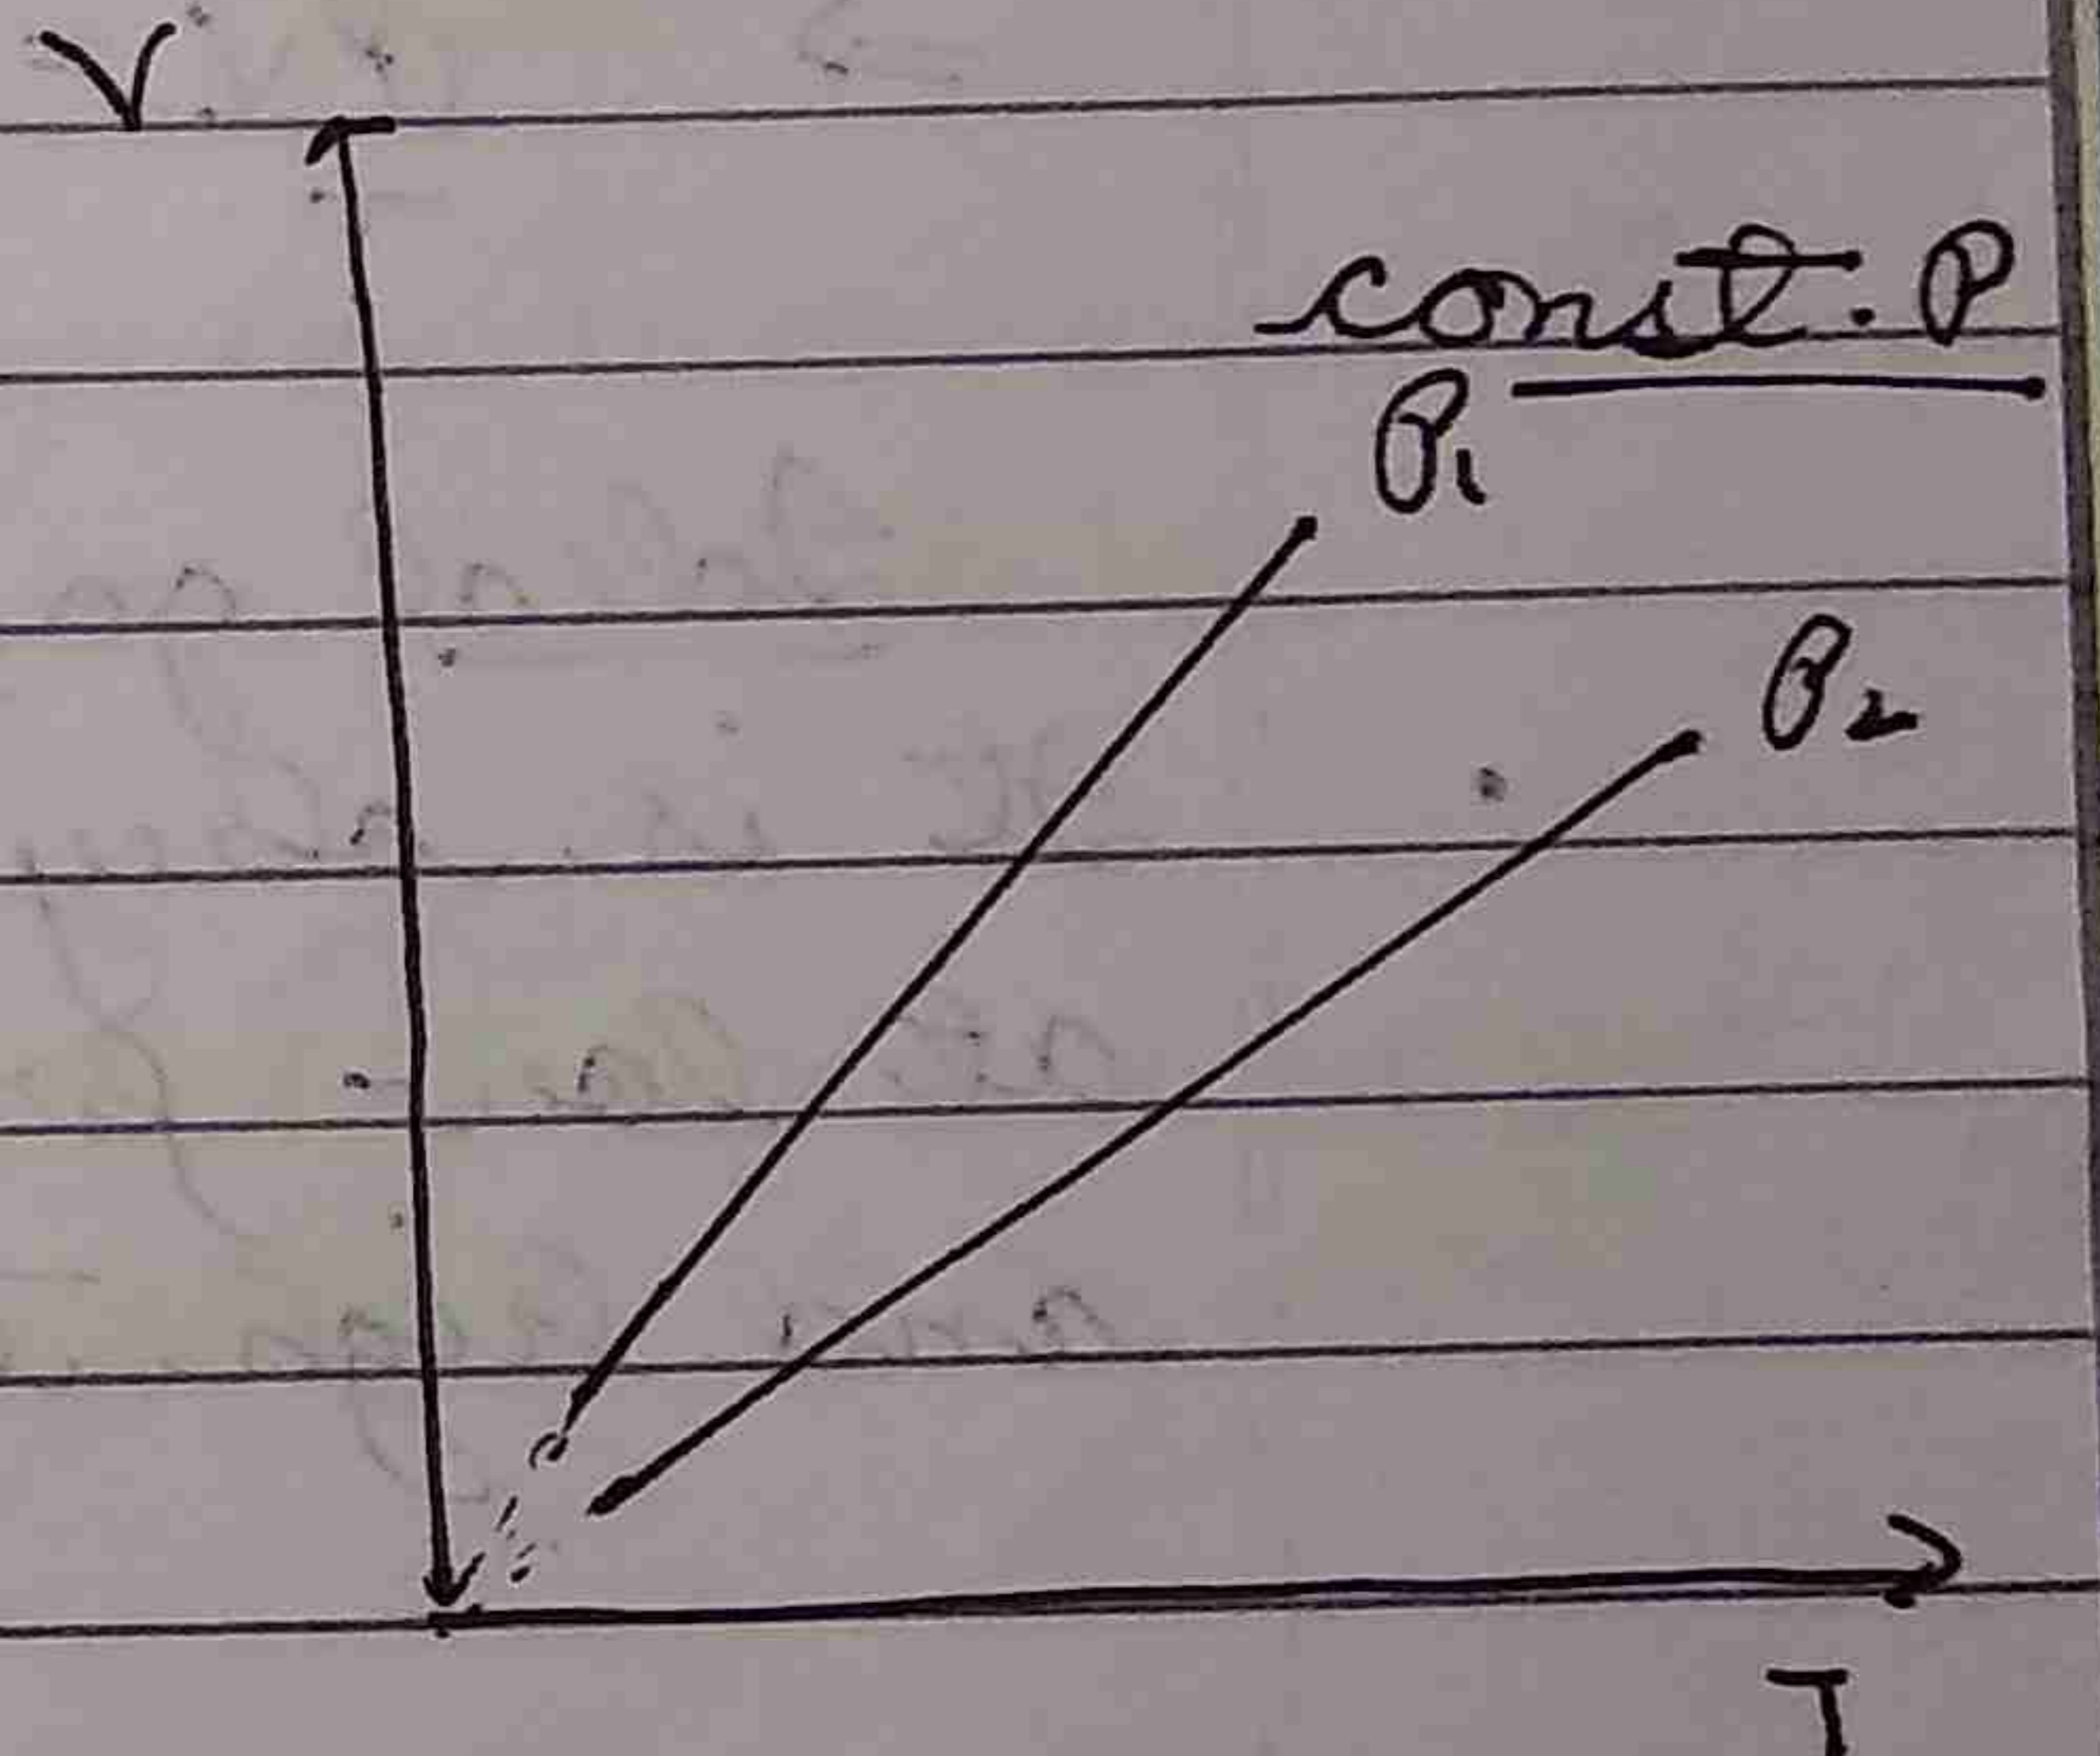 V
const. P
P₁
P₂
T